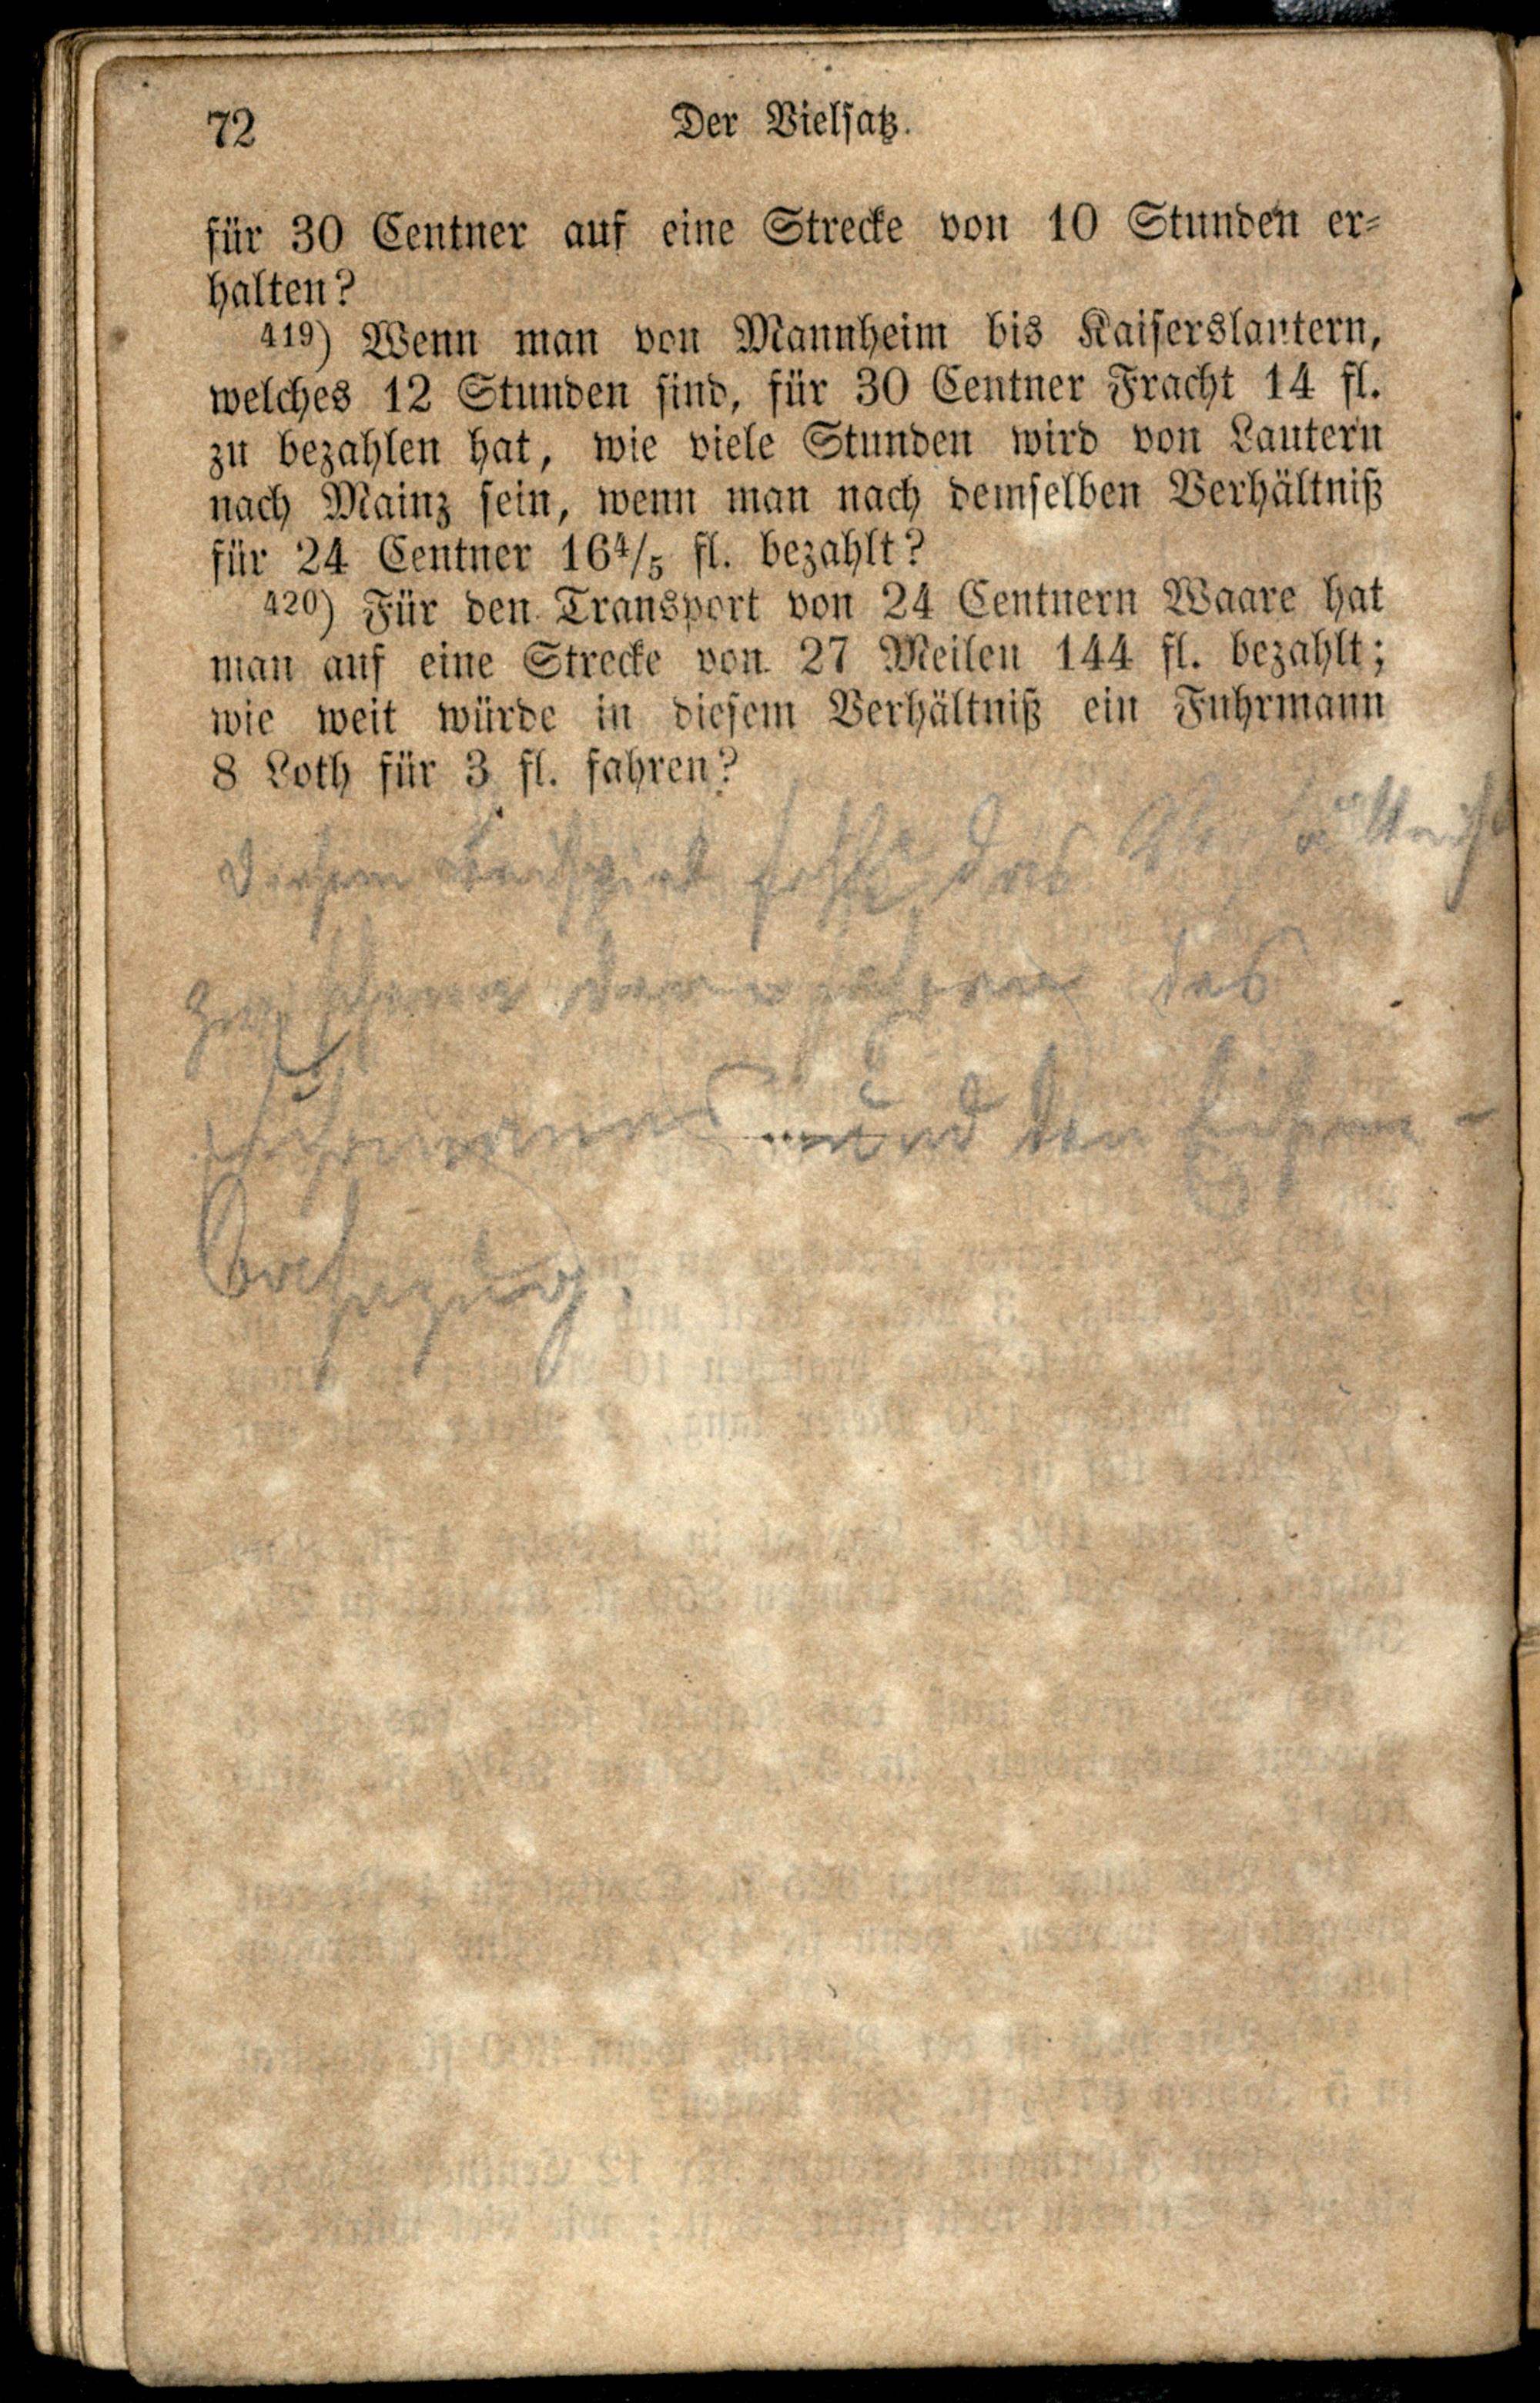 72
Der Vielsatz.
für 30 Centner auf eine Strecke von 10 Stunden er-
halten?
419) Wenn man von Mannheim bis Kaiserslautern,
welches 12 Stunden sind, für 30 Centner Fracht 14 fl.
zu bezahlen hat, wie viele Stunden wird von Lautern
nach Mainz sein, wenn man nach demselben Verhältniß
für 24 Centner 16⁴/₅ fl. bezahlt?
420) Für den Transport von 24 Centnern Waare hat
man auf eine Strecke von 27 Meilen 144 fl. bezahlt;
wie weit würde in diesem Verhältniß ein Fuhrmann
8 Loth für 3 fl. fahren?
Diesem Beispiel fehlt das Verhältniß
zwischen dem fahren des
Fuhrmanns und den